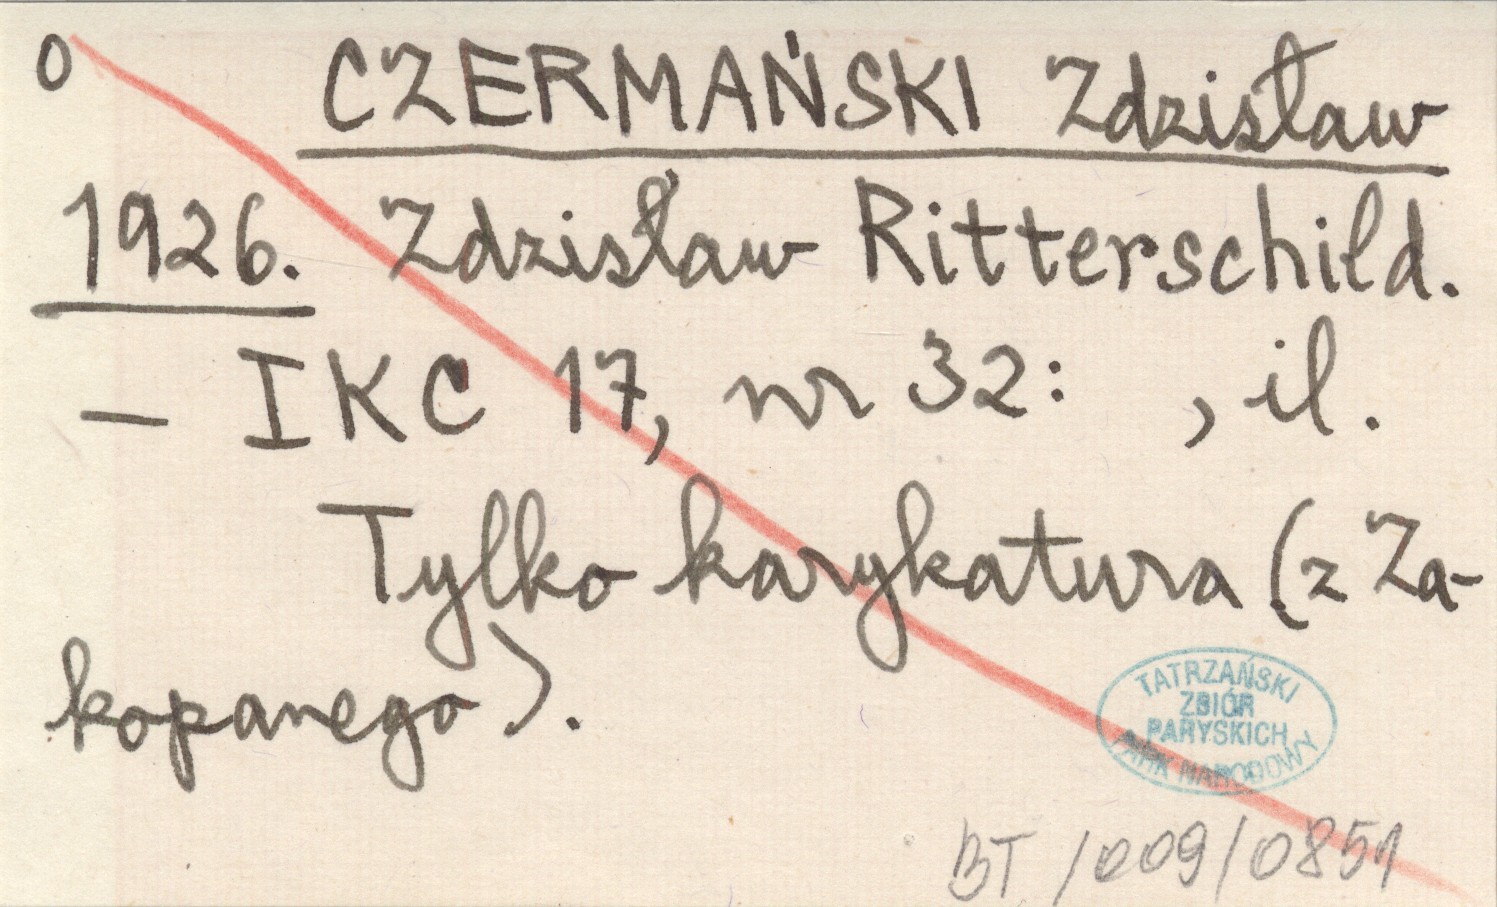 0 CZERMAŃSKI Zdzisław
1926. Zdzisław Ritterschild.
— IKC 17, nr 32: , il.
Tylko karykatura (z Za-
kopanego).
TATRZAŃSKI
ZBIÓR
PARYSKICH
PARK NARODOWY
BT /009/0851